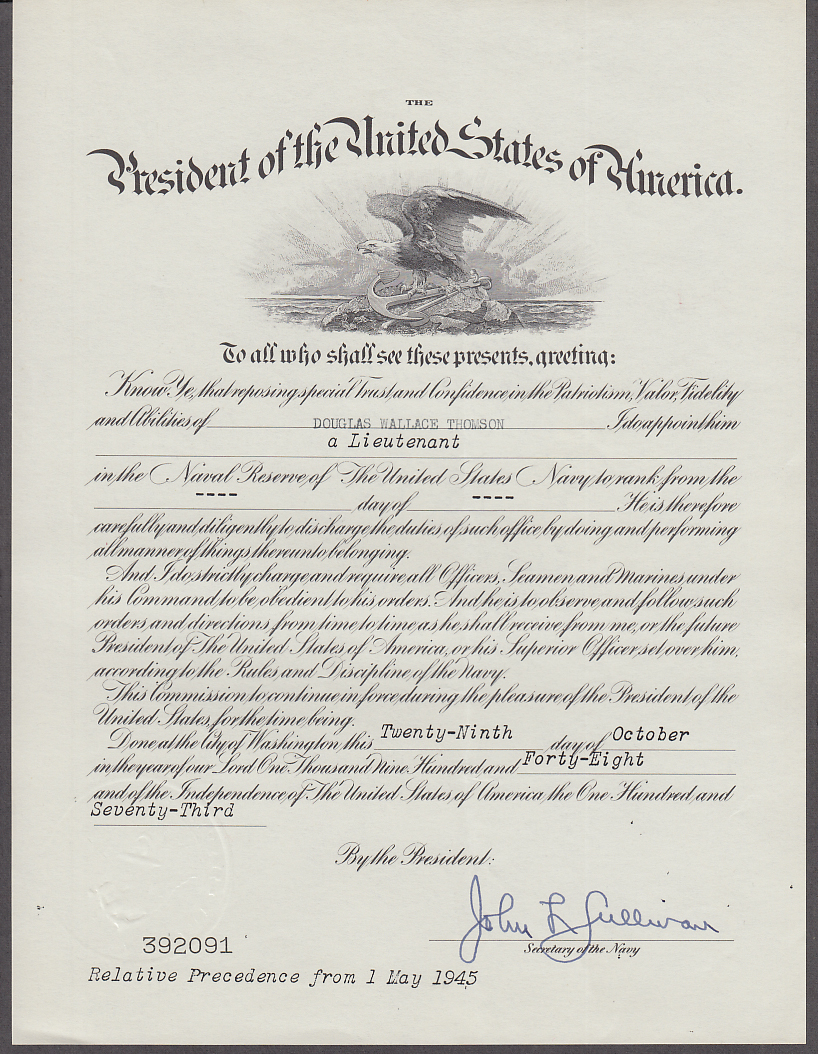 THE
President of the United States of America.
To all who shall see these presents, greeting:
Know Ye, that reposing special Trust and Confidence in the Patriotism, Valor, Fidelity
and Abilities of DOUGLAS WALLACE THOMSON I do appoint him
a Lieutenant
in the Naval Reserve of The United States Navy to rank from the
---- day of ---- He is therefore
carefully and diligently to discharge the duties of such office by doing and performing
all manner of things thereunto belonging.
And I do strictly charge and require all Officers, Seamen and Marines under
his Command to be obedient to his orders. And he is to observe and follow such
orders and directions from time to time as he shall receive from me, or the future
President of The United States of America, or his Superior Officer set over him,
according to the Rules and Discipline of the Navy.
This Commission to continue in force during the pleasure of the President of the
United States, for the time being.
Done at the City of Washington this Twenty-Ninth day of October
in the year of our Lord One Thousand Nine Hundred and Forty-Eight
and of the Independence of The United States of America the One Hundred and
Seventy-Third
By the President:
John L Sullivan
Secretary of the Navy
392091
Relative Precedence from 1 May 1945